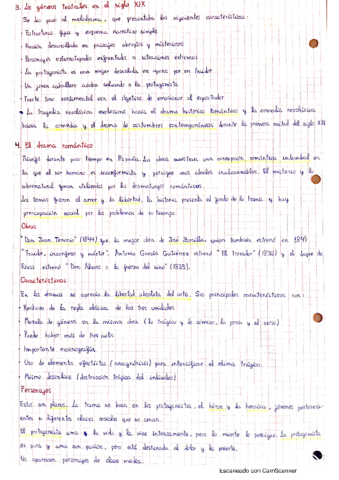 3. Los géneros teatrales en el siglo XIX
Se da paso al melodrama, que presentaba las siguientes características:
- Estructura típica y esquema narrativo simple
- Acción desarrollada en paisajes abruptos y misteriosos
- Personajes estereotipados enfrentados a situaciones extremas
- La protagonista es una mujer desvalida en apuros por un traidor
- Un joven caballero acaba salvando a la protagonista
- Fuerte tono sentimental con el objetivo de emocionar al espectador
La tragedia neoclásica evolucionó hacia el drama histórico romántico y la comedia neoclásica
hacia la comedia y el drama de costumbres contemporáneas durante la primera mitad del siglo XIX
4. El drama romántico
Triunfó durante poco tiempo en España. Las obras muestran una concepción romántica individual en
la que el ser humano es inconformista y persigue unos ideales inalcanzables. El misterio y lo
sobrenatural fueron utilizados por los dramaturgos románticos.
Los temas fueron el amor y la libertad, la historia presenta el fondo de la trama y hay
preocupación social por los problemas de su tiempo.
Obras
"Don Juan Tenorio" (1844) fue la mejor obra de José Zorrilla, quien también estrenó en 1849
"Traidor, inconfeso y mártir". Antonio García Gutiérrez estrenó "El trovador" (1836) y el Duque de
Rivas estrenó "Don Álvaro o la fuerza del sino" (1835).
Características
En los dramas se aprecia la libertad absoluta del arte. Sus principales características son:
- Rechazo de la regla clásica de las tres unidades
- Mezcla de géneros en la misma obra (lo trágico y lo cómico, la prosa y el verso)
- Puede haber más de tres actos
- Importante escenografía
- Uso de elementos efectistas para intensificar el clima trágico.
- Mismo desenlace (destrucción trágica del individuo)
Personajes
Estos son planos. La trama se basa en los protagonistas, el héroe y la heroína, jóvenes pertenecien-
tes a diferentes clases sociales que se aman.
El protagonista ama la vida y la vive intensamente, pero la muerte lo persigue. La protagonista
es pura y ama con pasión, pero está destinada al dolor y la muerte.
No aparecen personajes de clase media.
Escaneado con CamScanner